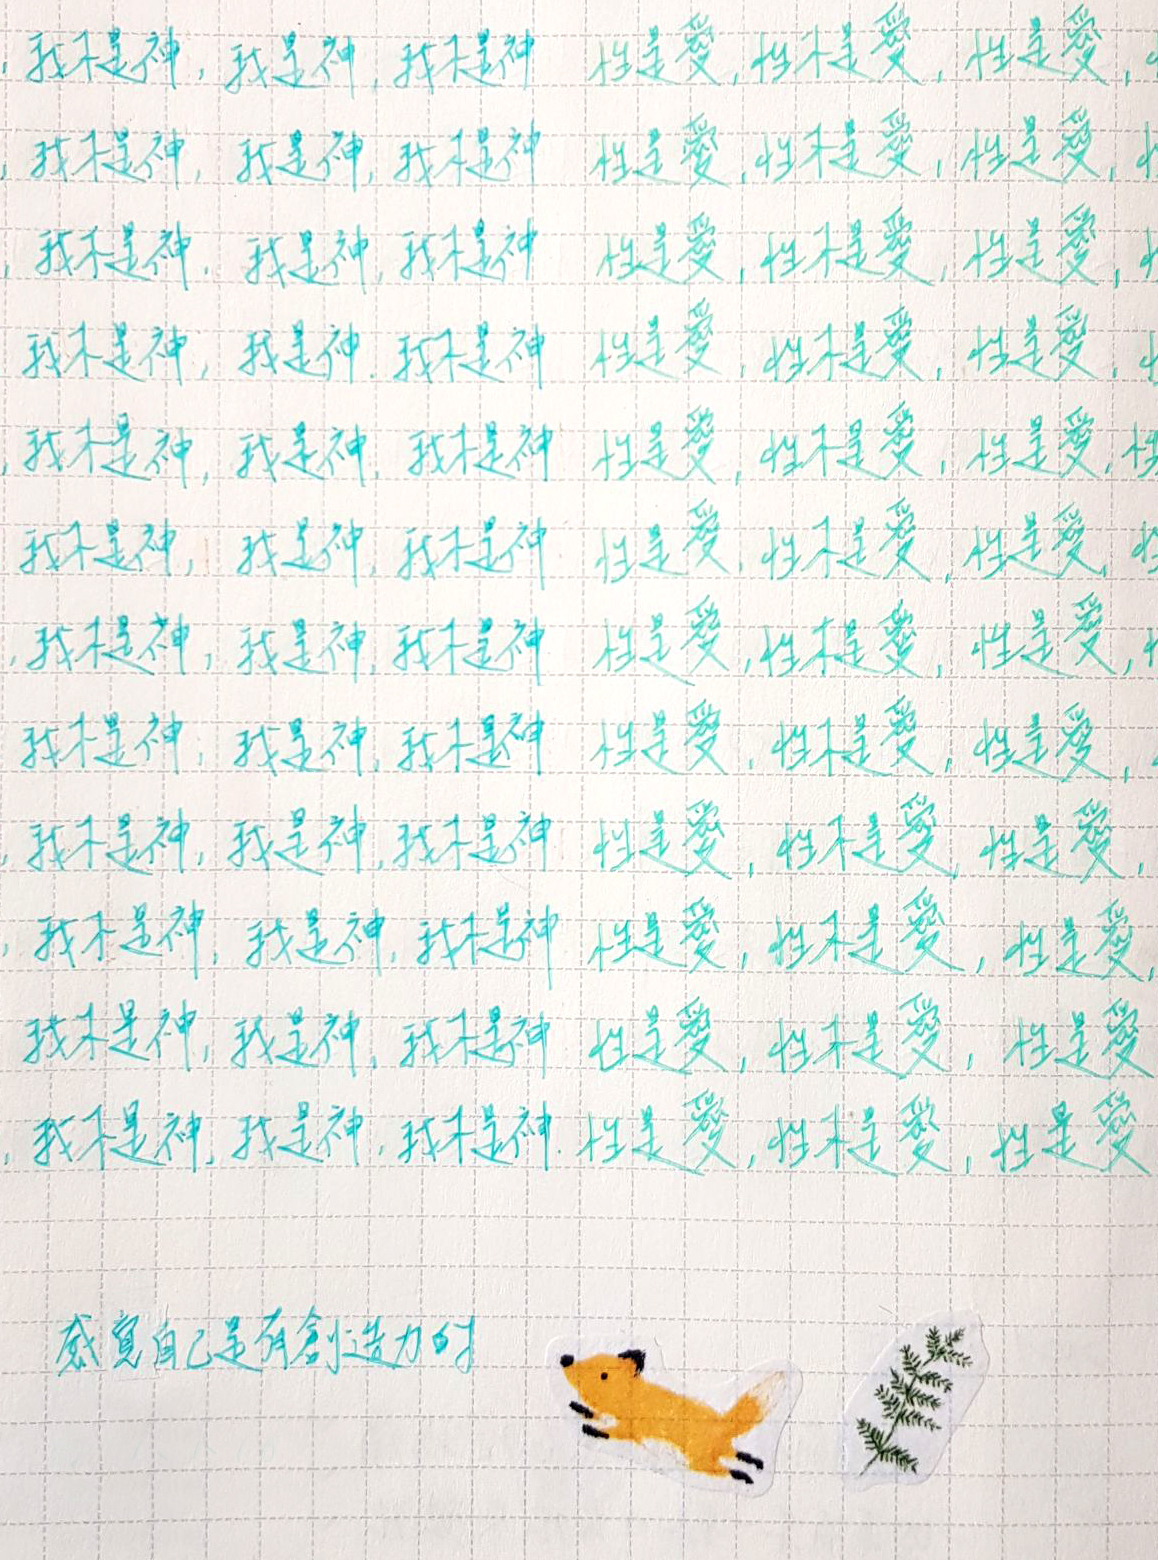 ，我不是神，我是神，我不是神 性是愛，性不是愛，性是愛，
，我不是神，我是神，我不是神 性是愛，性不是愛，性是愛，
，我不是神，我是神，我不是神 性是愛，性不是愛，性是愛，
我不是神，我是神，我不是神 性是愛，性不是愛，性是愛，
，我不是神，我是神，我不是神 性是愛，性不是愛，性是愛，
我不是神，我是神，我不是神 性是愛，性不是愛，性是愛，
，我不是神，我是神，我不是神 性是愛，性不是愛，性是愛，
我不是神，我是神，我不是神 性是愛，性不是愛，性是愛，
，我不是神，我是神，我不是神 性是愛，性不是愛，性是愛，
，我不是神，我是神，我不是神 性是愛，性不是愛，性是愛，
我不是神，我是神，我不是神 性是愛，性不是愛，性是愛
，我不是神，我是神，我不是神 性是愛，性不是愛，性是愛
感覺自己是有創造力的